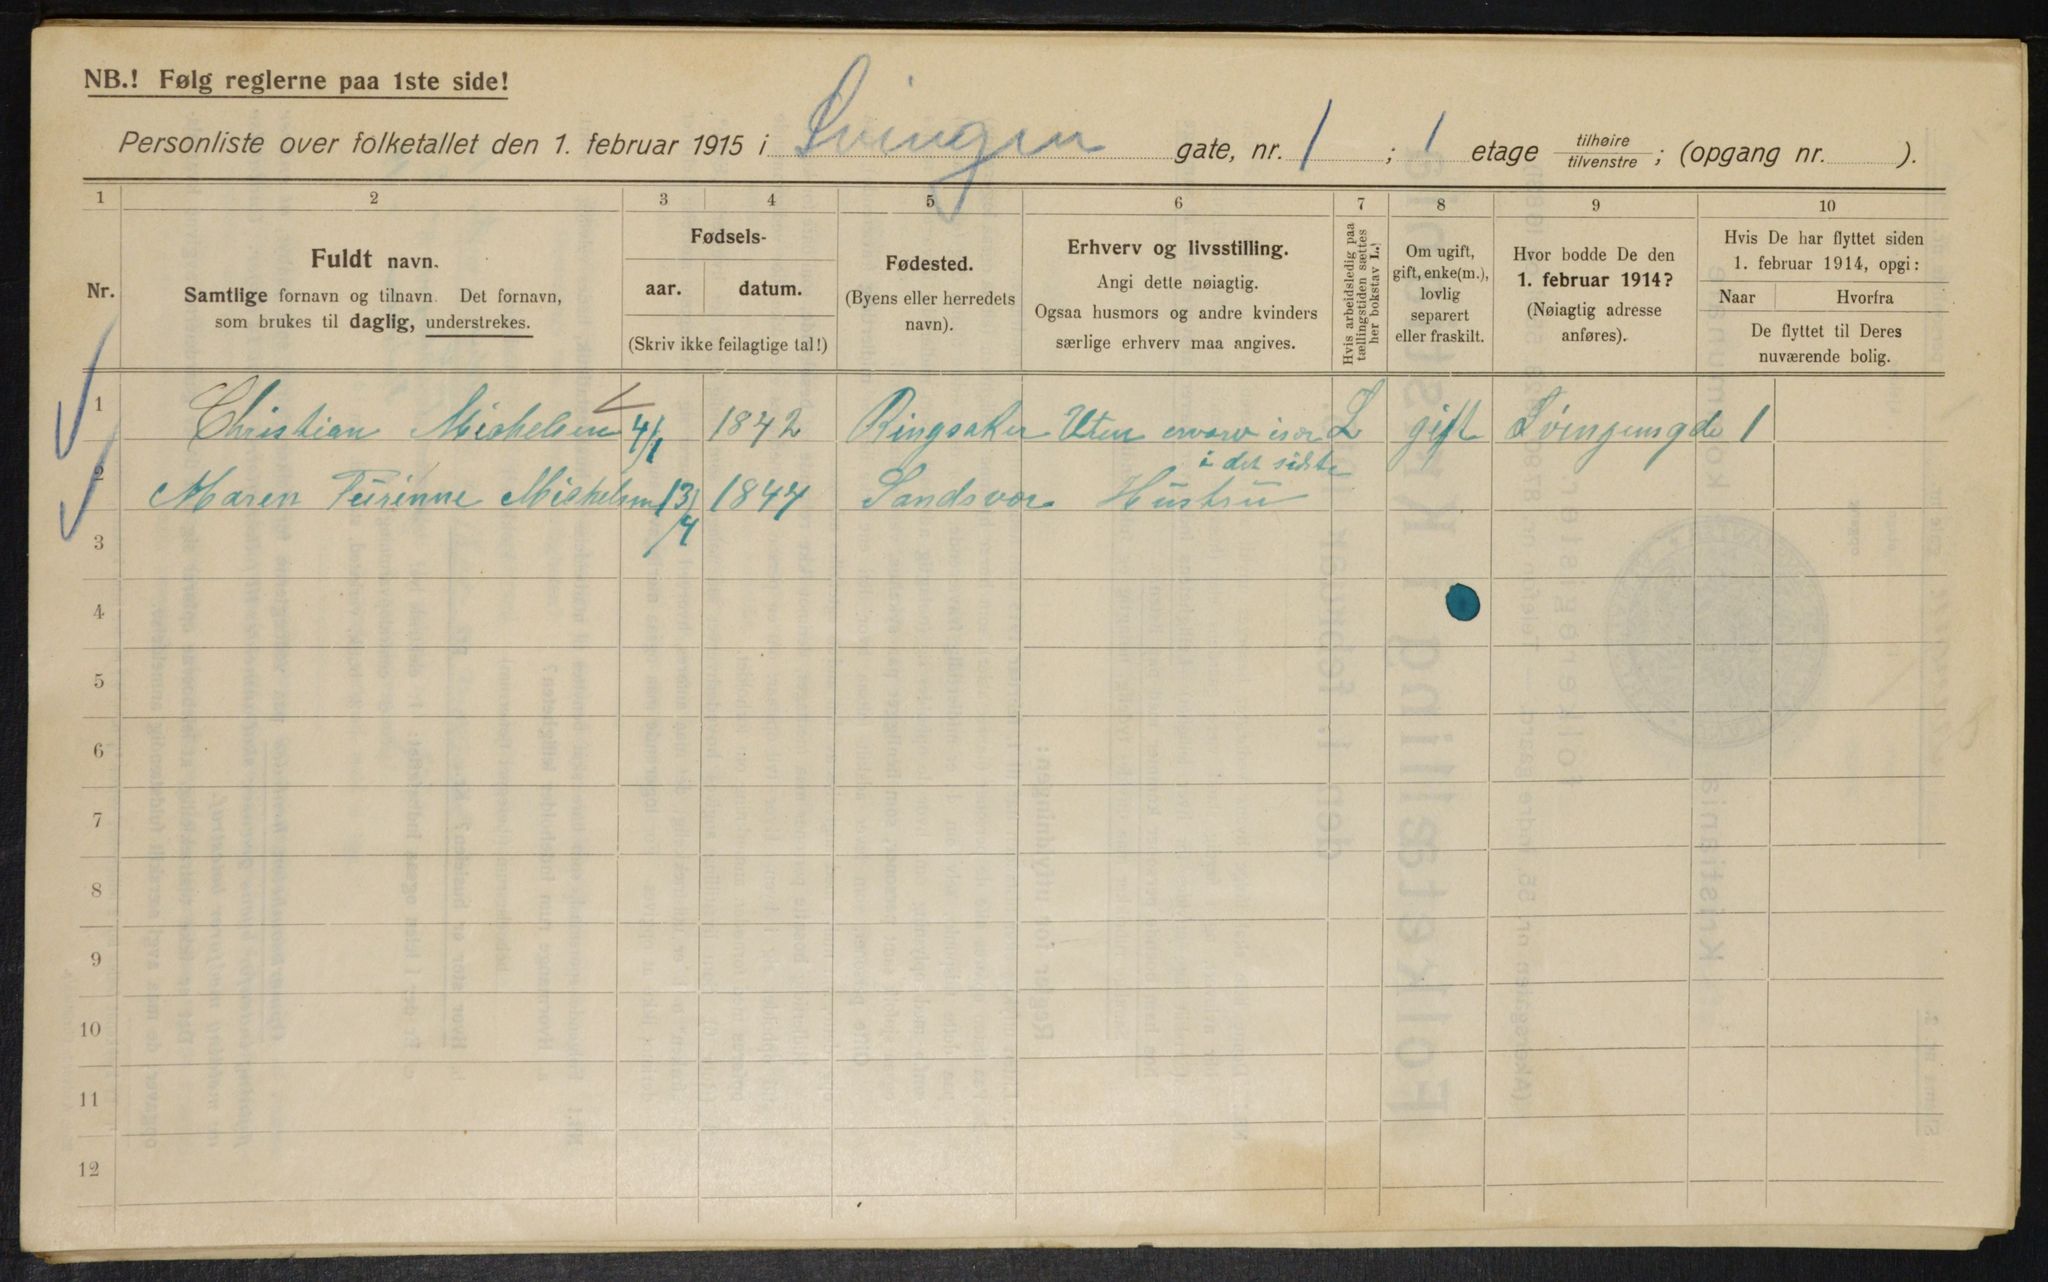 NB.! Følg reglerne paa 1ste side!
Personliste over folketallet den 1. februar 1915 i Svingen gate, nr. 1 ; 1 etage tilhøire tilvenstre ; (opgang nr. ).
1 2 3 4 5 6 7 8 9 10
Nr.
Fuldt navn.
Samtlige fornavn og tilnavn. Det fornavn,
som brukes til daglig, understrekes.
Fødsels-
aar. datum.
(Skriv ikke feilagtige tal!)
Fødested.
(Byens eller herredets
navn).
Erhverv og livsstilling.
Angi dette nøiagtig.
Ogsaa husmors og andre kvinders
særlige erhverv maa angives.
Hvis arbeidsledig paa
tællingstiden sættes
her bokstav L.!
Om ugift,
gift, enke(m.),
lovlig
separert
eller fraskilt.
Hvor bodde De den
1. februar 1914?
(Nøiagtig adresse
anføres).
Hvis De har flyttet siden
1. februar 1914, opgi:
Naar Hvorfra
De flyttet til Deres
nuværende bolig.
1 Christian Michelsen 4/1 1842 Ringsaker Uten L gift 1
i det sidste
2 Maren Michelsen 13/4 1844 Hustru
3
4
5
6
7
8
9
10
11
12